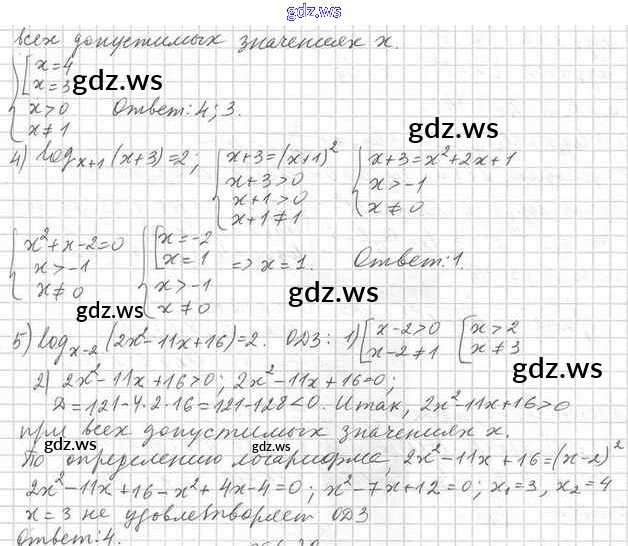 gdz.ws
всех допустимых значениях x.
x=4
x=3
gdz.ws
x>0 Ответ: 4; 3.
x≠1
gdz.ws
4) log_{x+1}(x+3)=2; x+3=(x+1)² x+3=x²+2x+1
x+3>0 x>-1
x+1>0 x≠0
x+1≠1
x²+x-2=0 x=-2
x>-1 x=1 => x=1. Ответ: 1.
x≠0 x>-1
x≠0
gdz.ws gdz.ws
5) log_{x-2}(2x²-11x+16)=2. ОДЗ: 1) x-2>0 x>2
x-2≠1 x≠3
gdz.ws
2) 2x²-11x+16>0; 2x²-11x+16=0;
Д=121-4·2·16=121-128<0. Итак, 2x²-11x+16>0
при всех допустимых значениях x
gdz.ws gdz.ws
По определению логарифма, 2x²-11x+16=(x-2)²
2x²-11x+16-x²+4x-4=0; x²-7x+12=0; x₁=3, x₂=4
x=3 не удовлетворяет ОДЗ
gdz.ws
Ответ: 4.